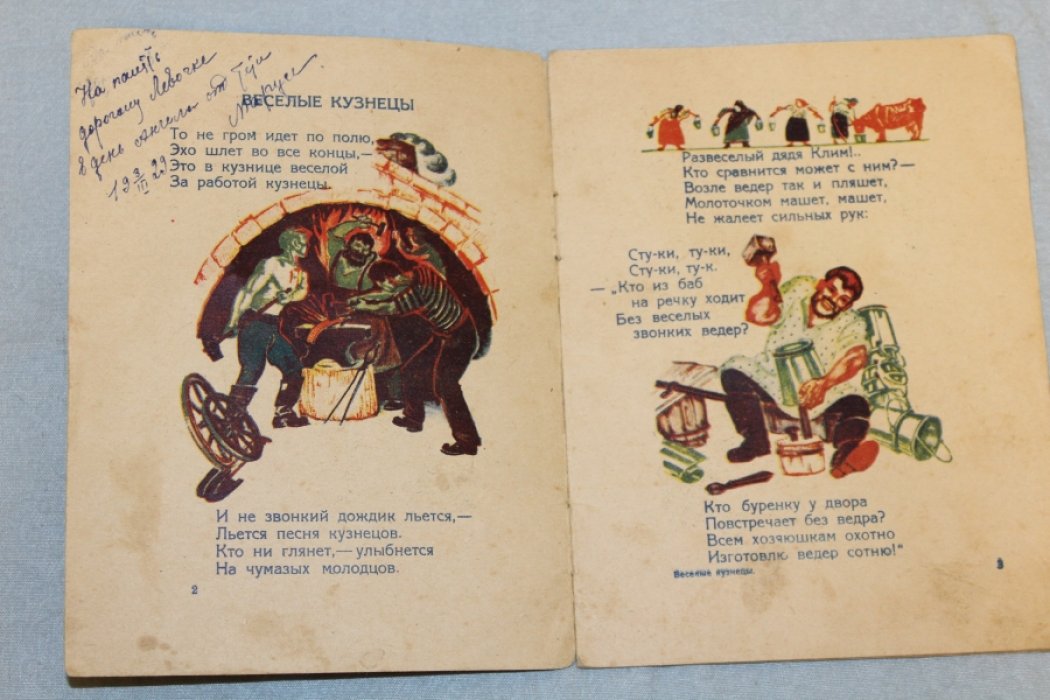 На память
дорогому Левочке
в день Ангела от Тути
Маруси.
19 3/III 29
ВЕСЕЛЫЕ КУЗНЕЦЫ
То не гром идет по полю,
Эхо шлет во все концы,—
Это в кузнице веселой
За работой кузнецы.
И не звонкий дождик льется,—
Льется песня кузнецов.
Кто ни глянет,— улыбнется
На чумазых молодцов.
2
Развеселый дядя Клим!..
Кто сравнится может с ним?—
Возле ведер так и пляшет,
Молоточком машет, машет,
Не жалеет сильных рук:
Сту-ки, ту-ки,
Сту-ки, ту-к.
— „Кто из баб
на речку ходит
Без веселых
звонких ведер?
Кто буренку у двора
Повстречает без ведра?
Всем хозяюшкам охотно
Изготовлю ведер сотню!“
Веселые кузнецы.
3